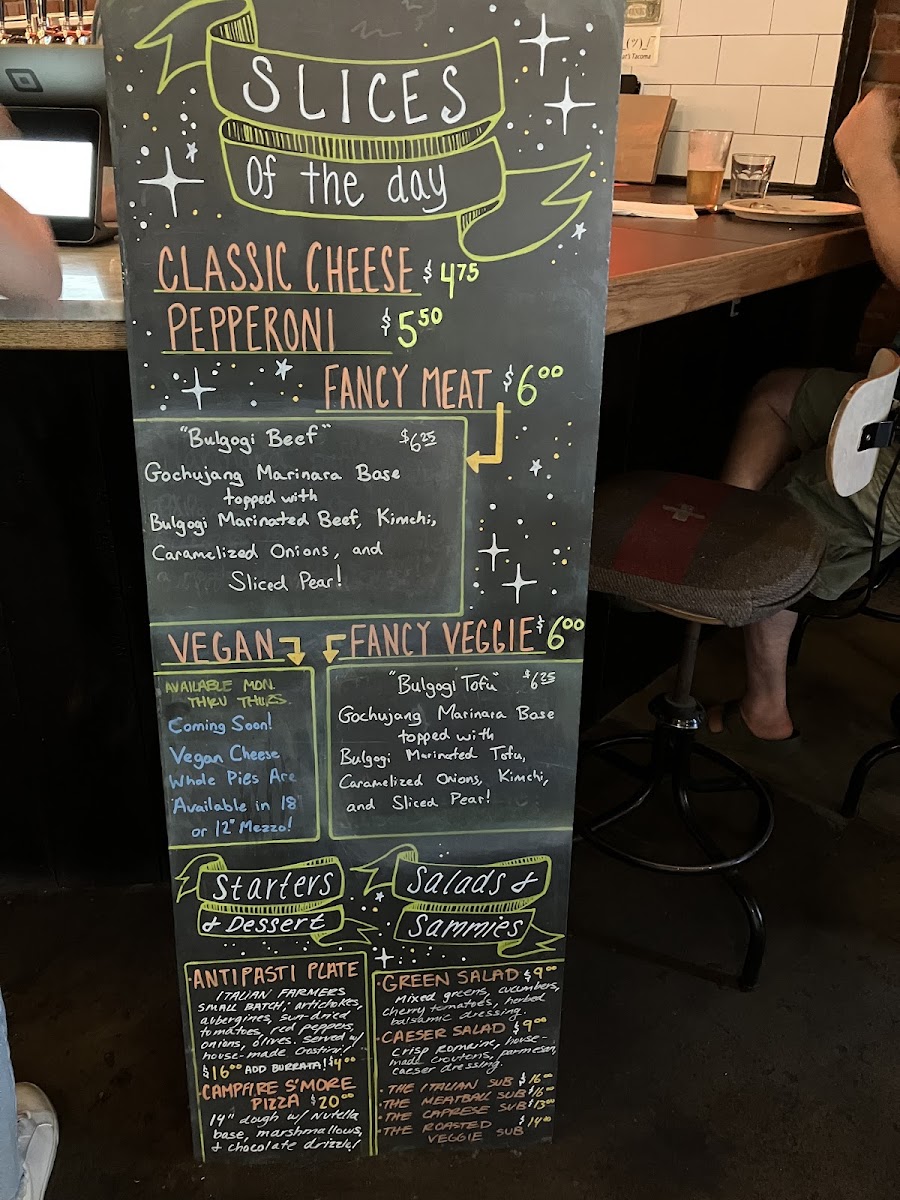 SLICES
of the day
CLASSIC CHEESE $4.75
PEPPERONI $5.50
FANCY MEAT $6.00
"Bulgogi Beef" $6.25
Gochujang Marinara Base
topped with
Bulgogi Marinated Beef, Kimchi,
Caramelized Onions, and
Sliced Pear!
VEGAN
AVAILABLE MON.
THRU THURS.
Coming Soon!
Vegan Cheese
Whole Pies Are
Available in 18
or 12" Mezzo!
FANCY VEGGIE $6.00
"Bulgogi Tofu" $6.25
Gochujang Marinara Base
topped with
Bulgogi Marinated Tofu,
Caramelized Onions, Kimchi,
and Sliced Pear!
Starters
& Dessert
·ANTIPASTI PLATE
ITALIAN FARMERS
SMALL BATCH; artichokes,
aubergines, sun-dried
tomatoes, red peppers,
onions, olives. served w/
house-made crostini!
$16.00 ADD BURRATA! $4.00
·CAMPFIRE S'MORE
PIZZA $20.00
14" dough w/ Nutella
base, marshmallows,
& chocolate drizzle!
Salads &
Sammies
·GREEN SALAD $9.00
Mixed greens, cucumbers,
cherry tomatoes, herbed
balsamic dressing.
·CAESER SALAD $9.00
crisp Romaine, house-
made croutons, parmesan,
caeser dressing.
·THE ITALIAN SUB $16.00
·THE MEATBALL SUB $16.00
·THE CAPRESE SUB $13.00
·THE ROASTED $14.00
VEGGIE SUB